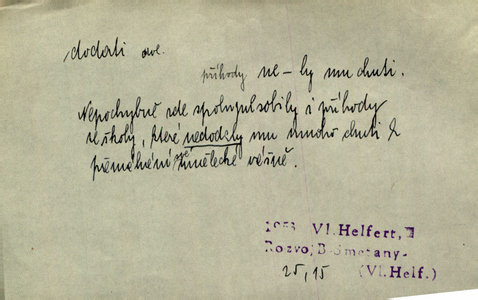 dodati dok.
příhody ne–ly mu chuti.
Nepochybně zde spolupůsobily i příhody
ze školy, které nedodaly mu mnoho chuti k
přemáhání své umělecké vášně.
1953 Vl.Helfert,
Rozvoj B.Smetany-
25,15 (Vl.Helf.)